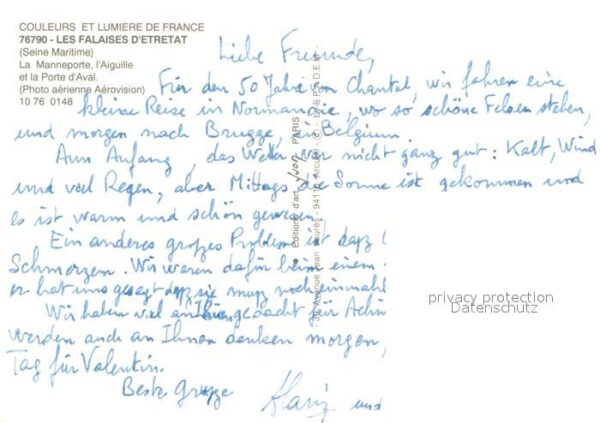 COULEURS ET LUMIERE DE FRANCE
76790 - LES FALAISES D'ETRETAT
(Seine Maritime)
La Manneporte, l'Aiguille
et la Porte d'Aval.
(Photo aérienne Aérovision)
10 76 0148
Liebe Freunde,
Für den 50 Jahre von Chantal, wir fahren eine
kleine Reise in Normandie, wo so schöne Felsen stehen,
und morgen nach Brugge, in Belgium.
Am Anfang, das Wetter war nicht ganz gut: Kalt, Wind
und viel Regen, aber Mittags die Sonne ist gekommen und
es ist warm und schön gewesen.
Ein anderes großes Problem ist daß
Schmerzen. Wir waren dafür beim einem
er hat uns gesagt daß sie muß nocheinmal
Wir haben viel an Ihnen gedacht für
werden auch an Ihnen denken morgen,
Tag für Valentin.
Beste Grüße
und
Editions d'art Yvon PARIS
Avenue Jean Jaurès - 941
privacy protection
Datenschutz